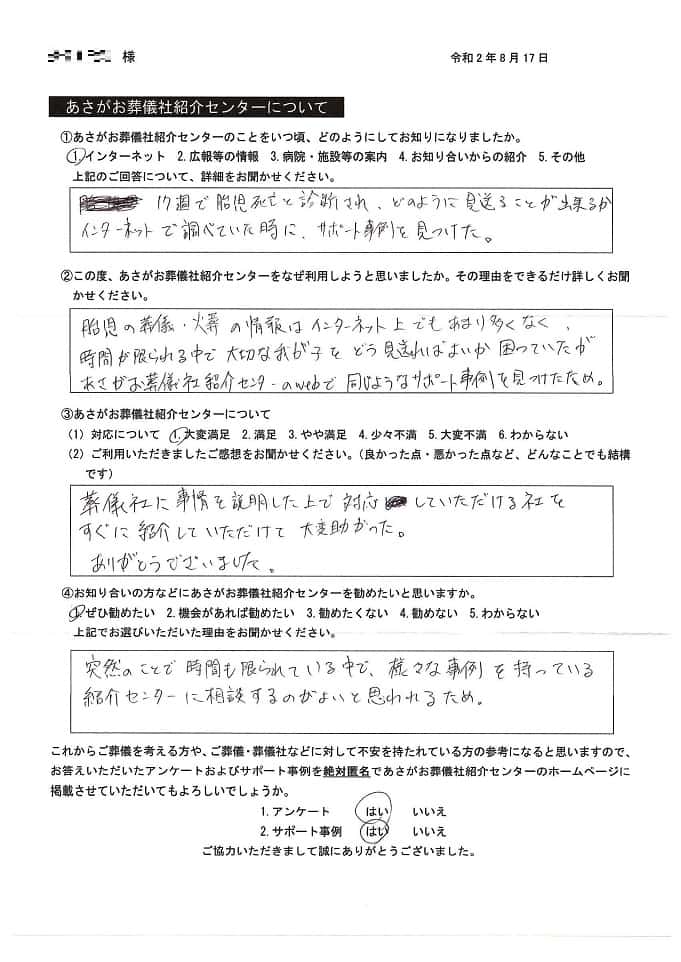 様
令和2年8月17日
あさがお葬儀社紹介センターについて
①あさがお葬儀社紹介センターのことをいつ頃、どのようにしてお知りになりましたか。
1.インターネット 2.広報等の情報 3.病院・施設等の案内 4.お知り合いからの紹介 5.その他
上記のご回答について、詳細をお聞かせください。
17週で胎児死亡と診断され、どのように見送ることが出来るか
インターネットで調べていた時に、サポート事例を見つけた。
②この度、あさがお葬儀社紹介センターをなぜ利用しようと思いましたか。その理由をできるだけ詳しくお聞
かせください。
胎児の葬儀・火葬の情報はインターネット上でもあまり多くなく、
時間が限られる中で大切な我が子をどう見送ればよいか困っていたが
あさがお葬儀社紹介センターのwebで同じようなサポート事例を見つけたため。
③あさがお葬儀社紹介センターについて
(1) 対応について 1.大変満足 2.満足 3.やや満足 4.少々不満 5.大変不満 6.わからない
(2) ご利用いただきましたご感想をお聞かせください。(良かった点・悪かった点など、どんなことでも結構
です)
葬儀社に事情を説明した上で対応していただける社を
すぐに紹介していただけて大変助かった。
ありがとうございました。
④お知り合いの方などにあさがお葬儀社紹介センターを勧めたいと思いますか。
1.ぜひ勧めたい 2.機会があれば勧めたい 3.勧めたくない 4.勧めない 5.わからない
上記でお選びいただいた理由をお聞かせください。
突然のことで時間も限られている中で、様々な事例を持っている
紹介センターに相談するのがよいと思われるため。
これからご葬儀を考える方や、ご葬儀・葬儀社などに対して不安を持たれている方の参考になると思いますので、
お答えいただいたアンケートおよびサポート事例を絶対匿名であさがお葬儀社紹介センターのホームページに
掲載させていただいてもよろしいでしょうか。
1.アンケート はい いいえ
2.サポート事例 はい いいえ
ご協力いただきまして誠にありがとうございました。